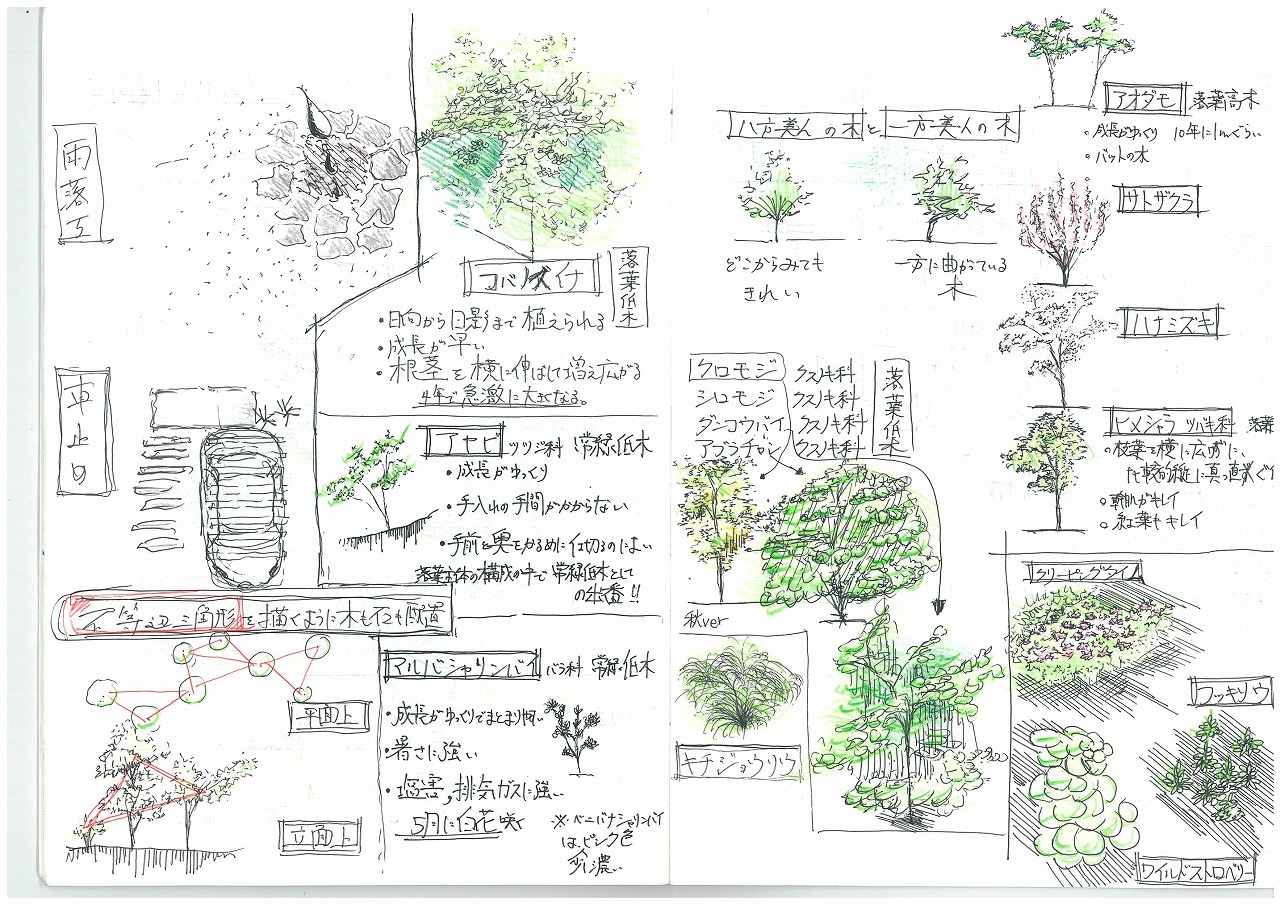 雨落工
コバノズイナ
落葉低木
・日向から日影まで植えられる
・成長が早い
・根茎を横に伸ばして増え広がる
4年で急激に大きくなる。
車止め
アセビ ツツジ科 常緑低木
・成長がゆっくり
・手入れの手間がかからない
・手前と奥をかるめに仕切るのによい
落葉主体の構成の中で常緑低木として
の出番!!
不等辺三角形を描くように木も石も配置
平面上
立面上
マルバシャリンバイ バラ科 常緑低木
・成長がゆっくりでまとまり良い
・暑さに強い
・塩害,排気ガスに強い
5月に白花咲く
※ベニバナシャリンバイ
はピンク色
が濃い
八方美人の木と一方美人の木
どこからみても
きれい
一方に曲がっている
木
アオダモ 落葉高木
。成長がゆっくり 10年に1mぐらい
。バットの木
サトザクラ
ハナミズキ
ヒメシャラ ツバキ科 落葉
。枝葉を横に広げずに、
比較的縦に真っ直ぐ
。幹肌がキレイ
。紅葉もキレイ
クロモジ クスノキ科
シロモジ クスノキ科
ダンコウバイ クスノキ科
アブラチャン クスノキ科
落葉低木
秋ver
キチジョウソウ
クリーピングタイム
フッキソウ
ワイルドストロベリー